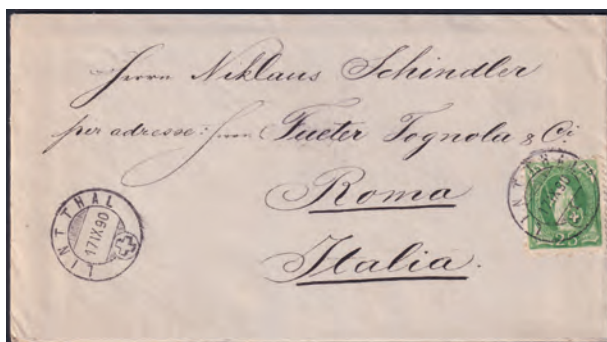 Herrn Niklaus Schindler
per adresse: Herrn Fueter Tognola & Cie
Roma
Italia.
LINTTHAL
17 IX 90
LINTHAL
25